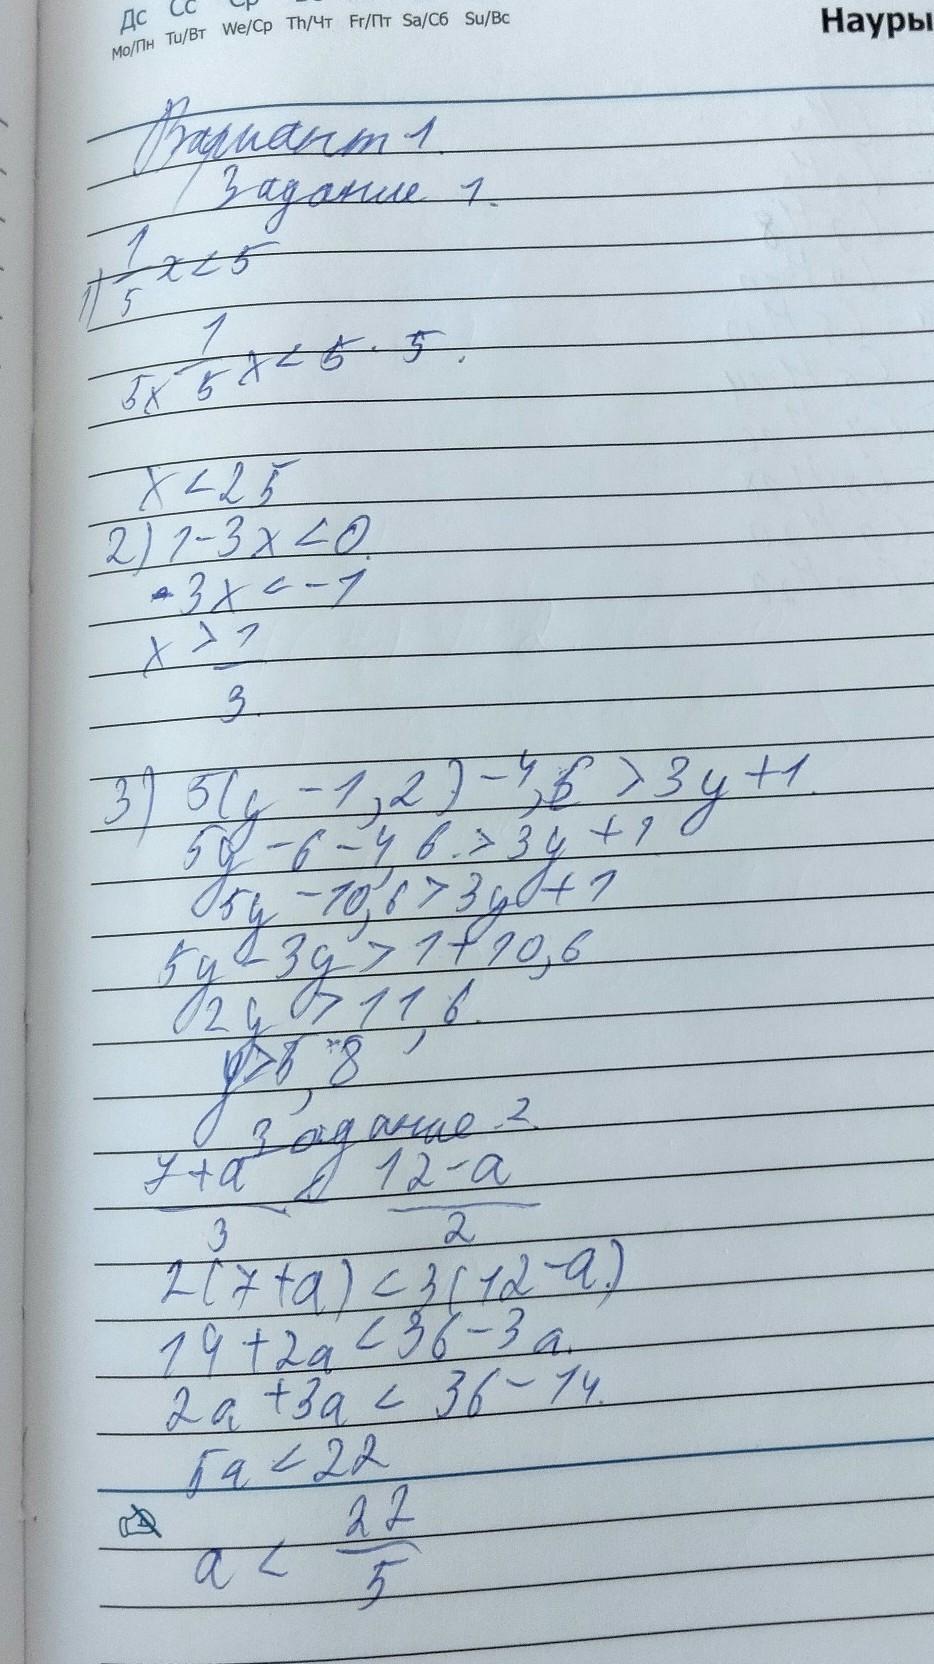 Дс Сс Ср
Mo/Пн Tu/Вт We/Ср Th/Чт Fr/Пт Sa/Сб Su/Вс
Науры
Вариант 1.
Задание 1.
1) 1/5 x < 5
5x 1/5 x < 5 · 5.
x < 25
2) 1-3x < 0.
-3x < -1
x > 1/3.
3) 5(y - 1,2) - 4,6 > 3y + 1.
5y - 6 - 4,6 > 3y + 1
5y - 10,6 > 3y + 1
5y - 3y > 1 + 10,6
2y > 11,6.
y > 5,8
Задание 2.
7+a/3 < 12-a/2
2(7+a) < 3(12-a)
14 + 2a < 36 - 3a.
2a + 3a < 36 - 14.
5a < 22
a < 22/5